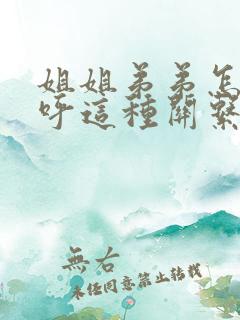 姐姐弟弟怎
呼這種關繫
無右
未经同意禁止转载